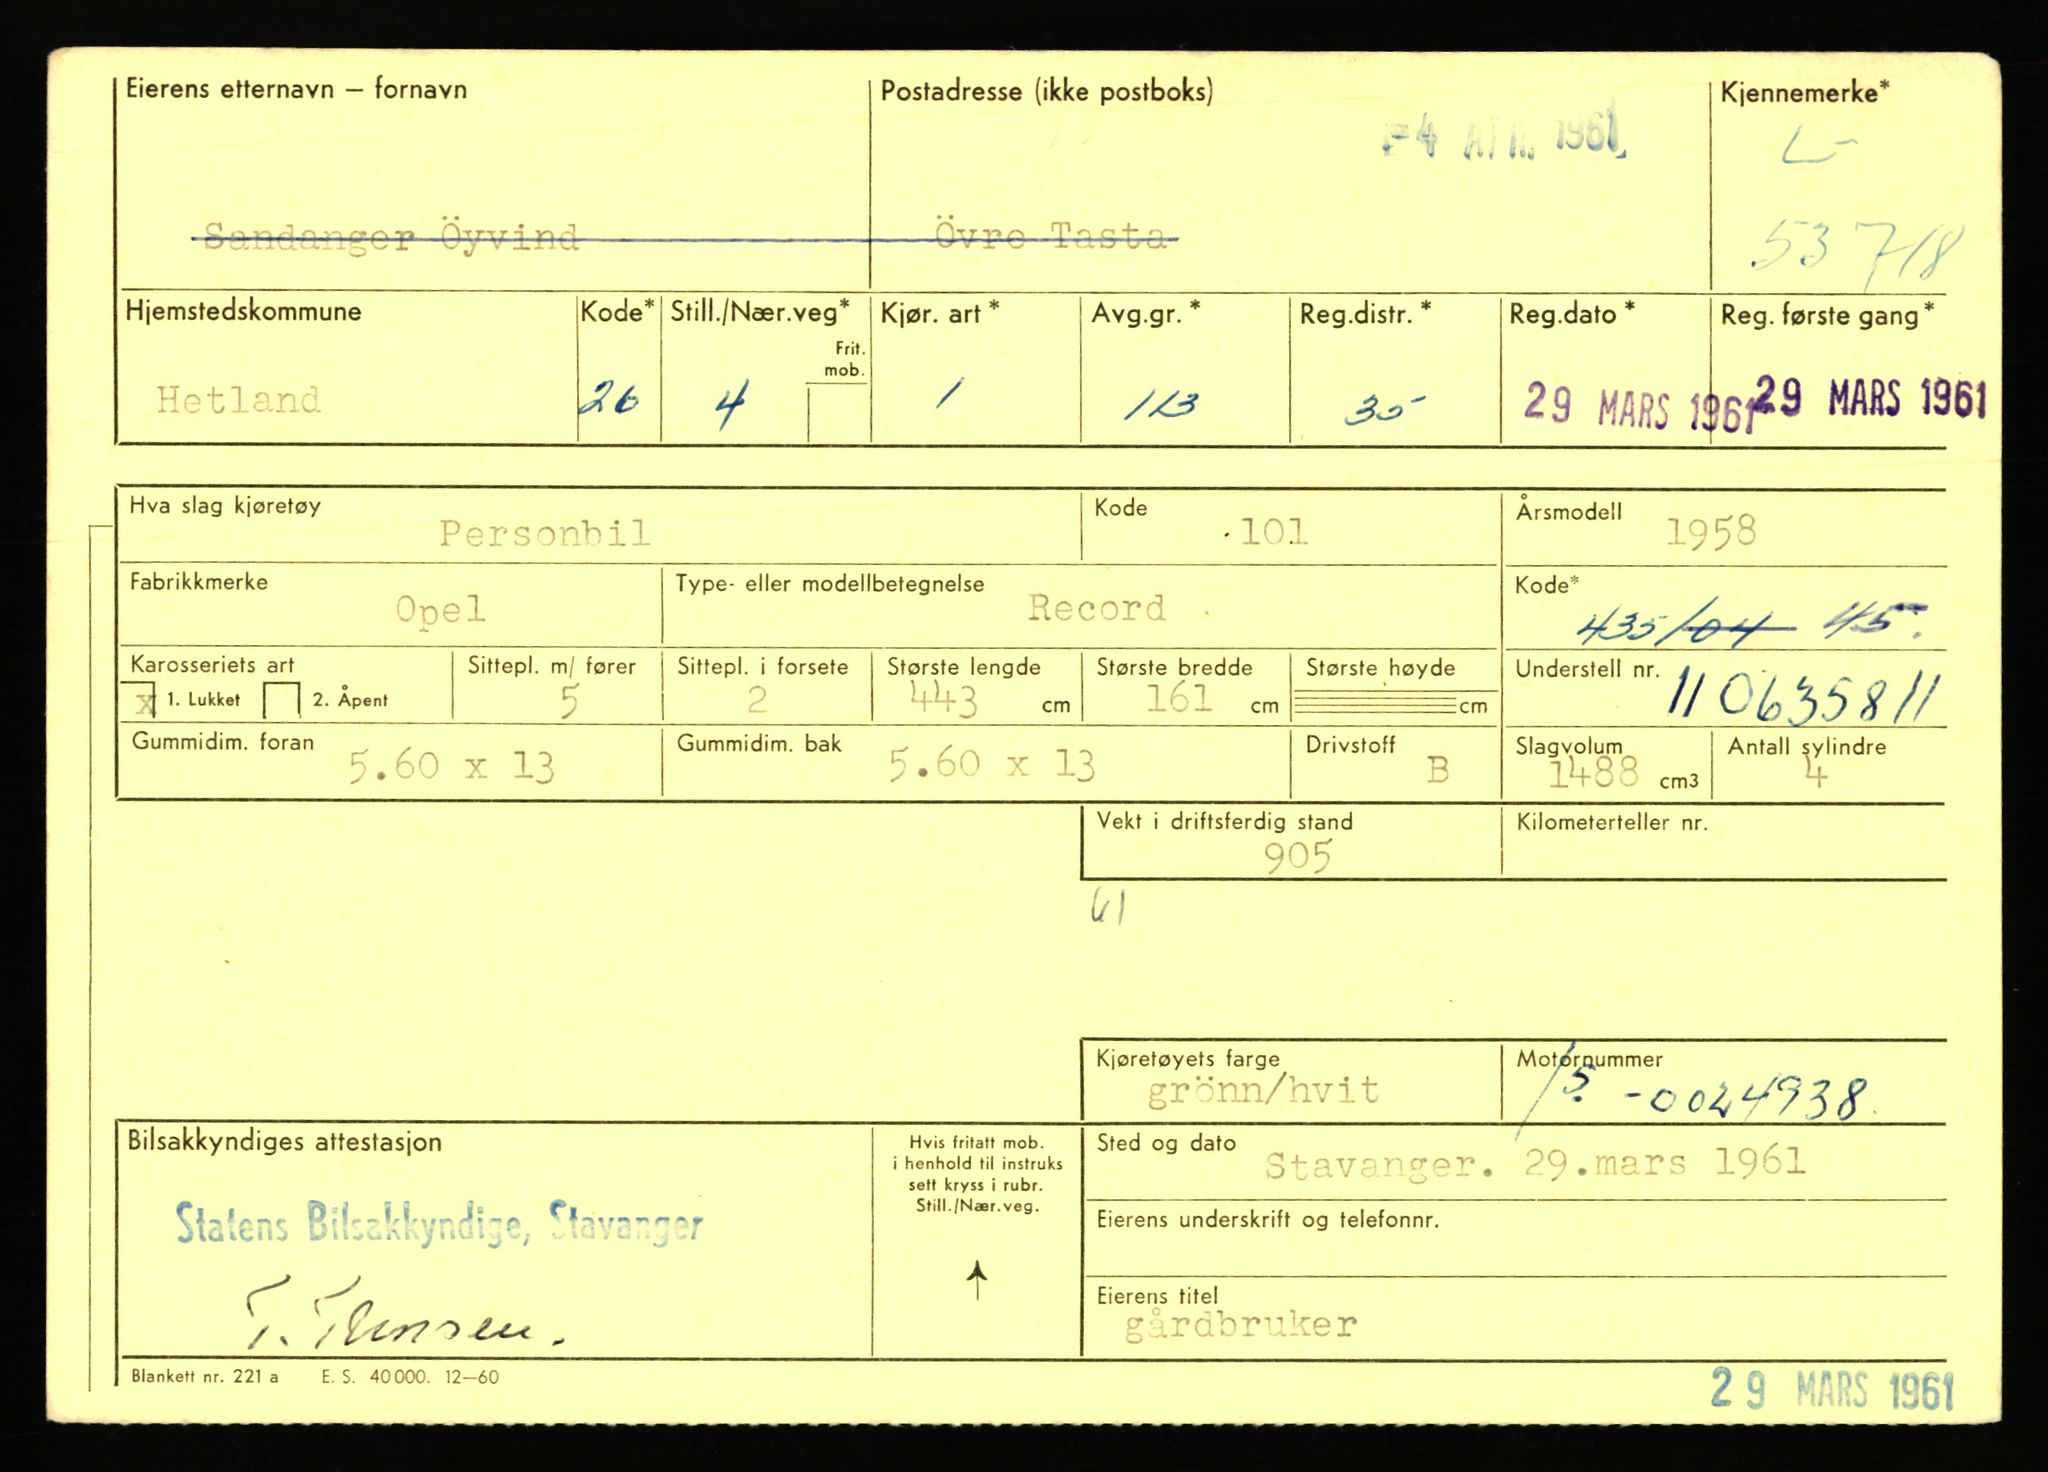 Eierens etternavn – fornavn
Postadresse (ikke postboks)
Kjennemerke*
-4 APR. 1961
L-
Sandanger Öyvind
Övre Tasta
53718
Hjemstedskommune
Kode*
Still./Nær.veg*
Kjør. art*
Avg.gr.*
Reg.distr.*
Reg.dato*
Reg. første gang*
Frit.
mob.
Hetland
26
4
1
113
35
29 MARS 1961
29 MARS 1961
Hva slag kjøretøy
Kode
Årsmodell
Personbil
101
1958
Fabrikkmerke
Type- eller modellbetegnelse
Kode*
Opel
Record
435/04 45.
Karosseriets art
Sittepl. m/ fører
Sittepl. i forsete
Største lengde
Største bredde
Største høyde
Understell nr.
x 1. Lukket
2. Åpent
5
2
443 cm
161 cm
cm
110635811
Gummidim. foran
Gummidim. bak
Drivstoff
Slagvolum
Antall sylindre
5.60 x 13
5.60 x 13
B
1488 cm3
4
Vekt i driftsferdig stand
Kilometerteller nr.
905
61
Kjøretøyets farge
Motornummer
grönn/hvit
15. -0024938.
Bilsakkyndiges attestasjon
Hvis fritatt mob.
i henhold til instruks
sett kryss i rubr.
Still./Nær.veg.
Sted og dato
Stavanger. 29.mars 1961
Statens Bilsakkyndige, Stavanger
Eierens underskrift og telefonnr.
Eierens titel
gårdbruker
Blankett nr. 221 a E. S. 40000. 12–60
29 MARS 1961